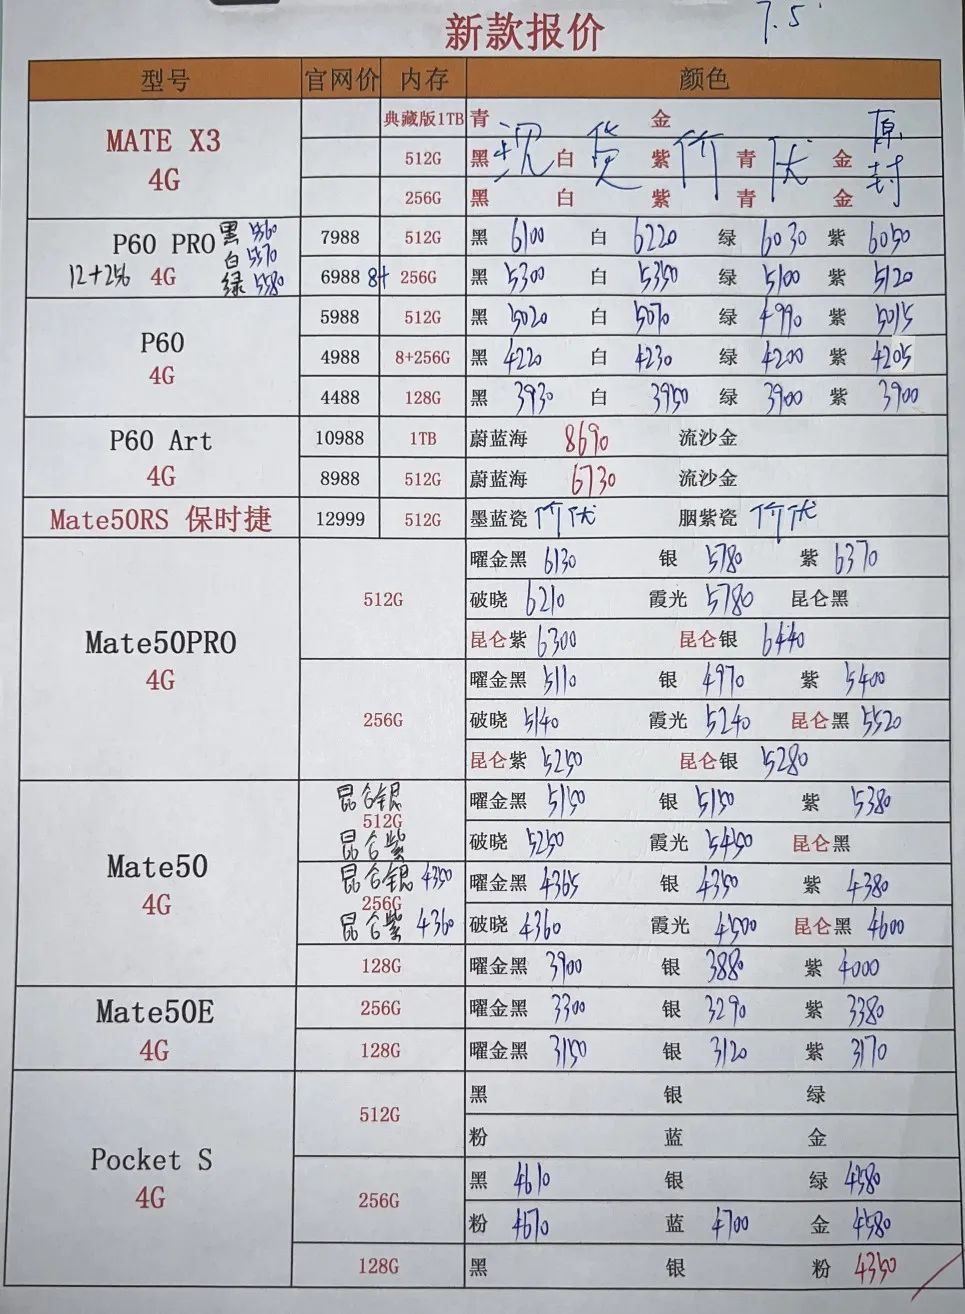 7.5
新款报价
型号 官网价 内存 颜色
MATE X3 4G
典藏版1TB 青 金
512G 黑 白 紫 青 金
256G 黑 白 紫 青 金
现货 竹伏 原封
P60 PRO 4G
黑 5560
白 5570
绿 5580
12+256
7988 512G 黑 6100 白 6220 绿 6030 紫 6050
6988 8+ 256G 黑 5300 白 5350 绿 5100 紫 5120
P60 4G
5988 512G 黑 5020 白 5070 绿 4990 紫 5015
4988 8+256G 黑 4220 白 4230 绿 4200 紫 4205
4488 128G 黑 3930 白 3950 绿 3900 紫 3900
P60 Art 4G
10988 1TB 蔚蓝海 8690 流沙金
8988 512G 蔚蓝海 6730 流沙金
Mate50RS 保时捷 12999 512G 墨蓝瓷 竹伏 胭紫瓷 竹伏
Mate50PRO 4G
512G 曜金黑 6130 银 5780 紫 6370
破晓 6210 霞光 5780 昆仑黑
昆仑紫 6300 昆仑银 6440
256G 曜金黑 5110 银 4970 紫 5400
破晓 5140 霞光 5240 昆仑黑 5520
昆仑紫 5250 昆仑银 5280
Mate50 4G
昆仑银
512G 曜金黑 5150 银 5150 紫 5380
昆仑紫
破晓 5250 霞光 5450 昆仑黑
昆仑银 4350
256G 曜金黑 4365 银 4350 紫 4380
昆仑紫 4360
破晓 4360 霞光 4500 昆仑黑 4600
128G 曜金黑 3900 银 3880 紫 4000
Mate50E 4G
256G 曜金黑 3300 银 3290 紫 3380
128G 曜金黑 3150 银 3120 紫 3170
Pocket S 4G
512G 黑 银 绿
粉 蓝 金
256G 黑 4610 银 绿 4580
粉 4670 蓝 4700 金 4580
128G 黑 银 粉 4350